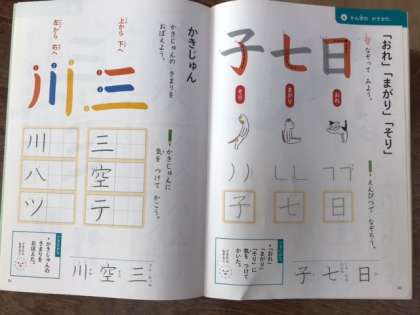 かん字の かきかた
「おれ」「まがり」「そり」
なぞって みよう。
日 七 子
おれ
まがり
そり
えんぴつで なぞろう。
日 七 子
「おれ」
「まがり」
「そり」に
気を つけて
かいた。
日 七 子
かきじゅん
かきじゅんの
きまりを
おぼえよう。
上から 下へ
三
左から 右へ
川
かきじゅんに
気を つけて かこう。
三 空 テ
川 八 ツ
かきじゅんの
きまりを
おぼえた。
三 空 川